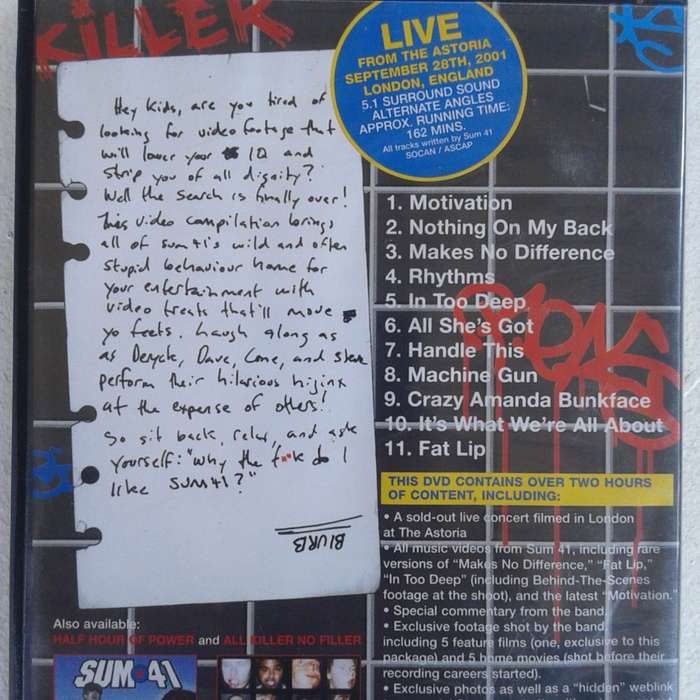 KiLLER
LIVE
FROM THE ASTORIA
SEPTEMBER 28TH, 2001
LONDON, ENGLAND
5.1 SURROUND SOUND
ALTERNATE ANGLES
APPROX. RUNNING TIME:
162 MINS.
All tracks written by Sum 41
SOCAN / ASCAP
Hey kids, are you tired of
looking for video footage that
will lower your IQ and
strip you of all dignity?
Well the search is finally over!
This video compilation brings
all of sum 41's wild and often
stupid behaviour home for
your entertainment with
video treats that'll move
yo feets. Laugh along as
as Deryck, Dave, Cone, and Steve
perform their hilarious hijinx
at the expense of others!
So sit back, relax, and ask
yourself: "why the f**k do I
like SUM41?"
BLURB
1. Motivation
2. Nothing On My Back
3. Makes No Difference
4. Rhythms
5. In Too Deep
6. All She's Got
7. Handle This
8. Machine Gun
9. Crazy Amanda Bunkface
10. It's What We're All About
11. Fat Lip
THIS DVD CONTAINS OVER TWO HOURS
OF CONTENT, INCLUDING:
• A sold-out live concert filmed in London
at The Astoria
• All music videos from Sum 41, including rare
versions of "Makes No Difference," "Fat Lip,"
"In Too Deep" (including Behind-The-Scenes
footage at the shoot), and the latest "Motivation."
• Special commentary from the band.
• Exclusive footage shot by the band
including 5 feature films (one, exclusive to this
package) and 5 home movies (shot before their
recording careers started).
• Exclusive photos as well as a "hidden" weblink
Also available:
HALF HOUR OF POWER and ALL KILLER NO FILLER
SUM 41